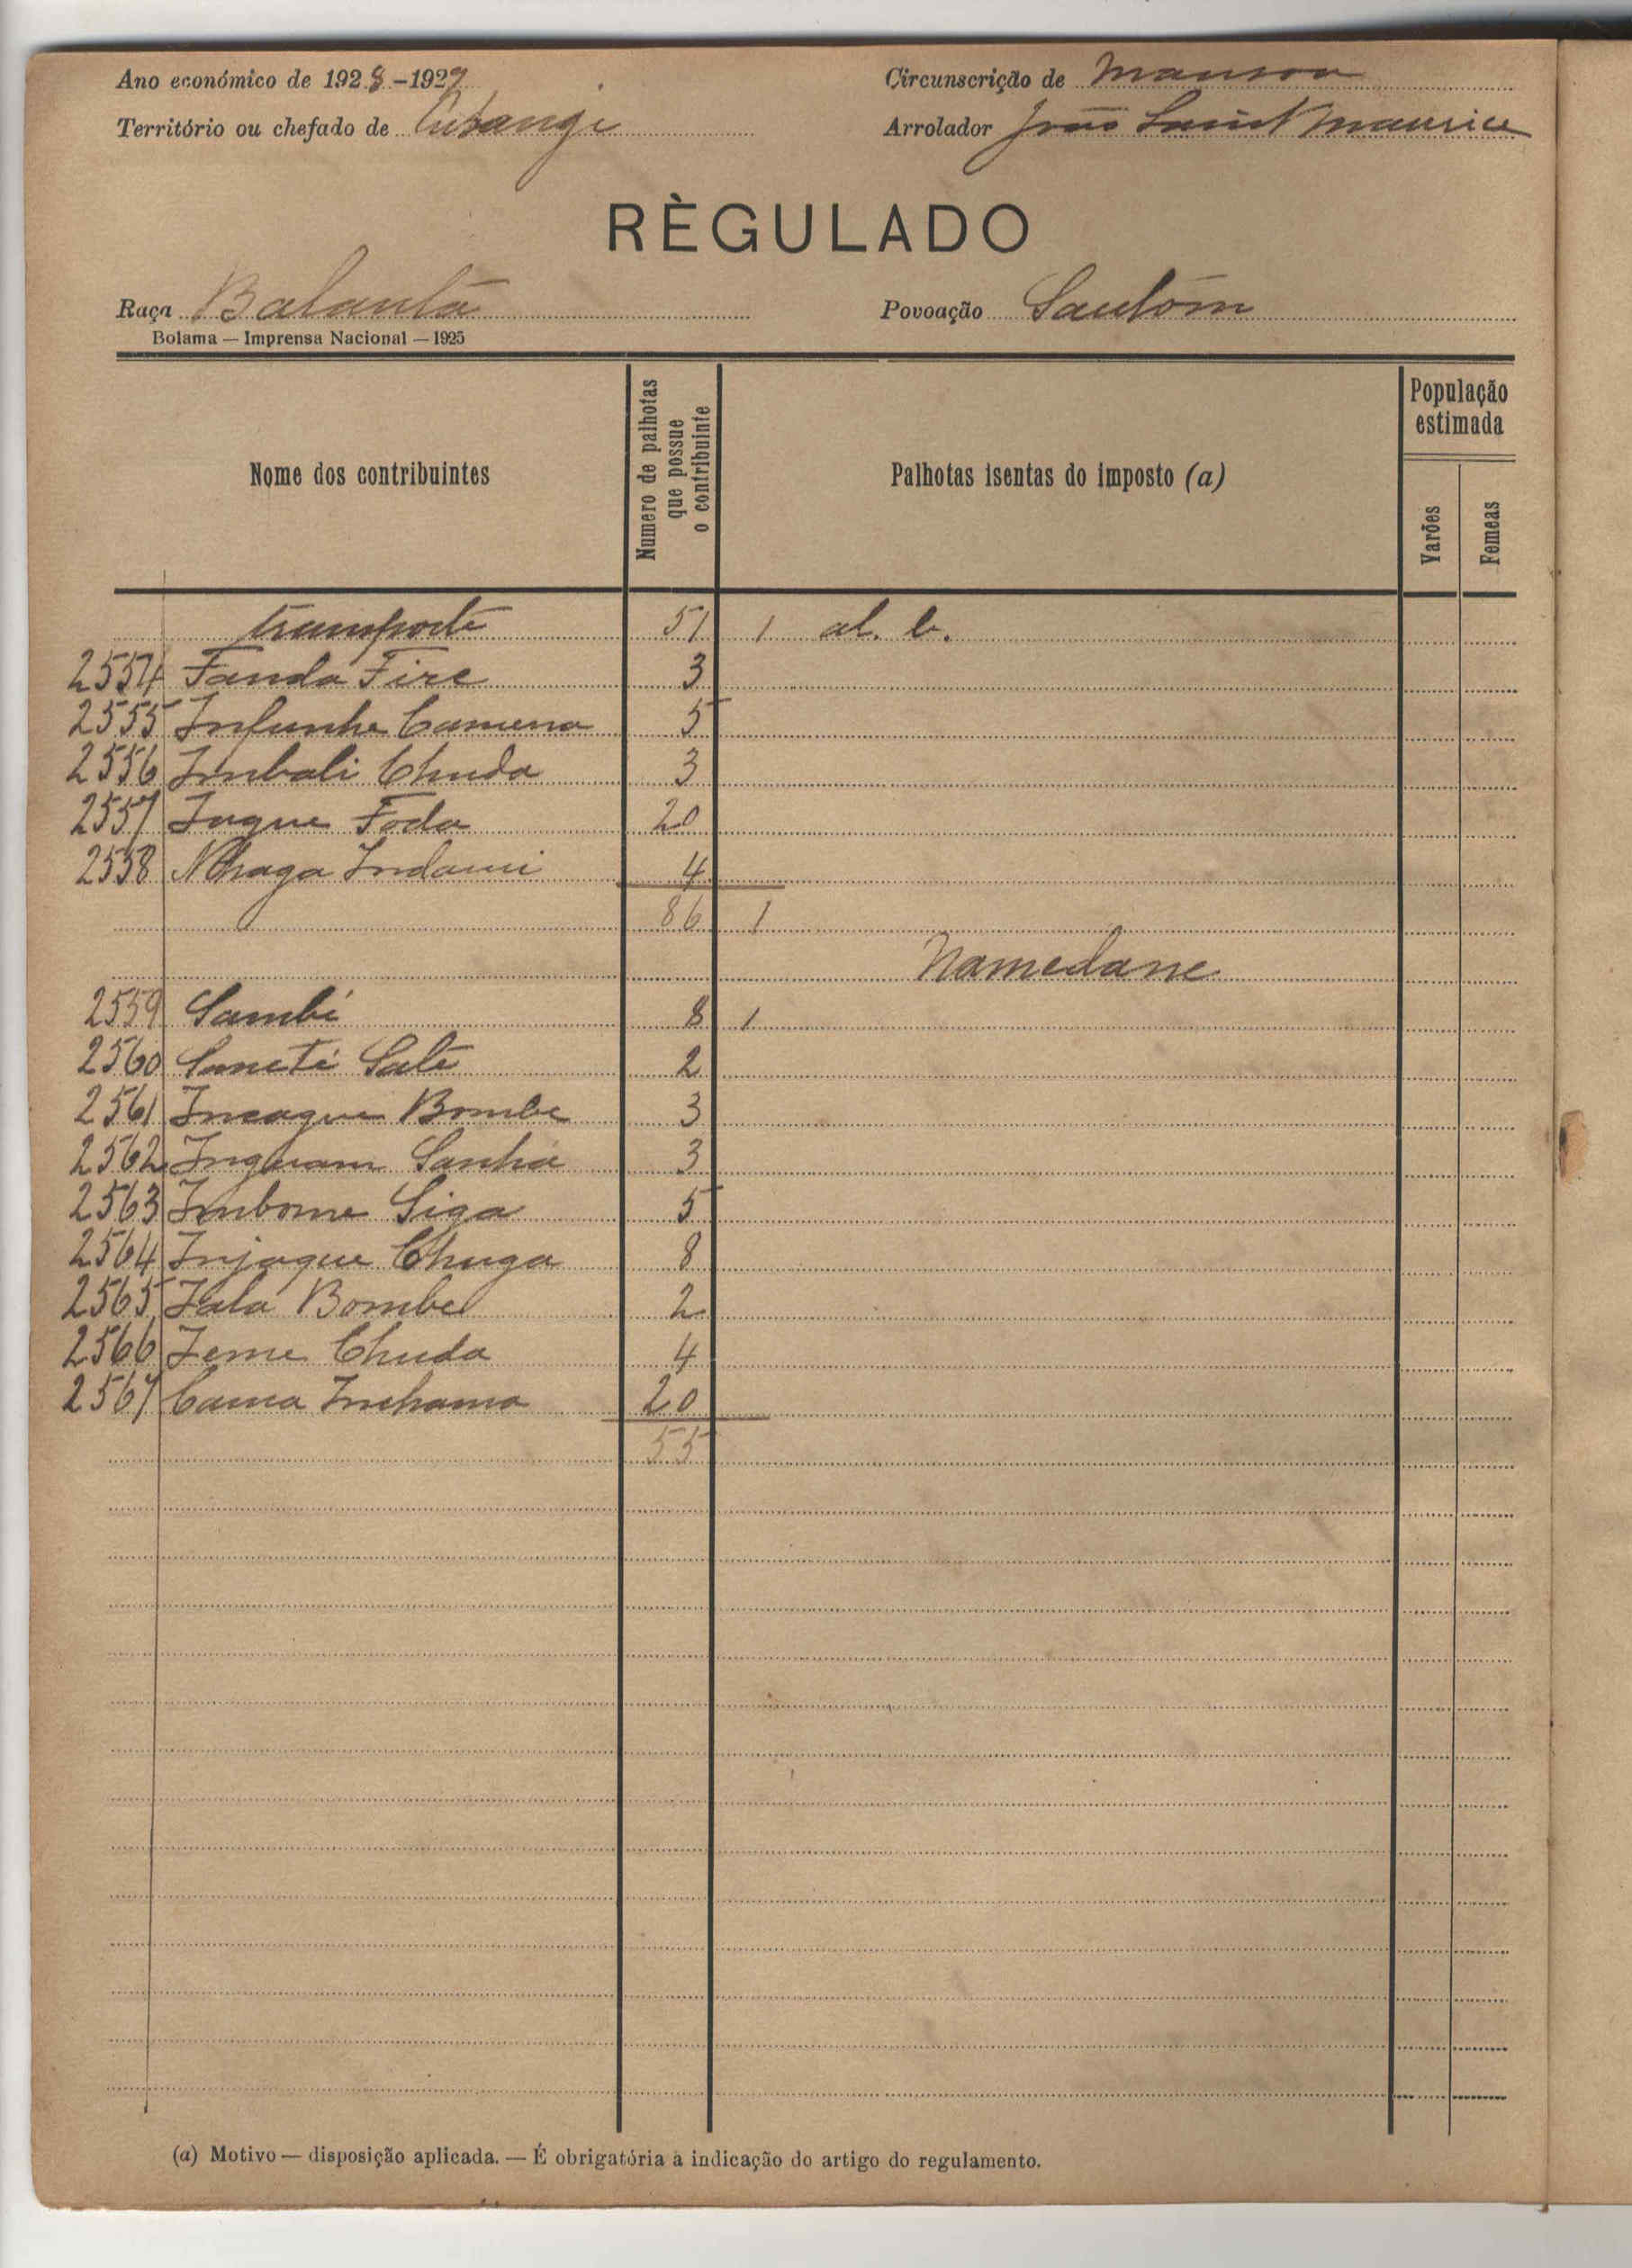 Ano económico de 1928-1929
Circunscrição de Mansoa
Território ou chefado de Cubangi
Arrolador João Saint Maurice
RÈGULADO
Raça Balanta
Povoação Sautóm
Bolama — Imprensa Nacional — 1925
Nome dos contribuintes
Numero de palhotas que possue o contribuinte
Palhotas isentas do imposto (a)
População estimada
Varões
Femeas
transporte 51 1 al. b.
2554 Fanda Fire 3
2555 Infunhe Camena 5
2556 Imbali Chuda 3
2557 Jugue Foda 20
2558 N'haga Indami 4
86 1
Namedane
2559 Sambi 8 1
2560 Sancté Saté 2
2561 Incague Bombe 3
2562 Inguam Sanhá 3
2563 Imbome Siga 5
2564 Injague Chuga 8
2565 Jalá Bombe 2
2566 Jeme Chuda 4
2567 Cama Inchama 20
55
(a) Motivo — disposição aplicada. — É obrigatória a indicação do artigo do regulamento.